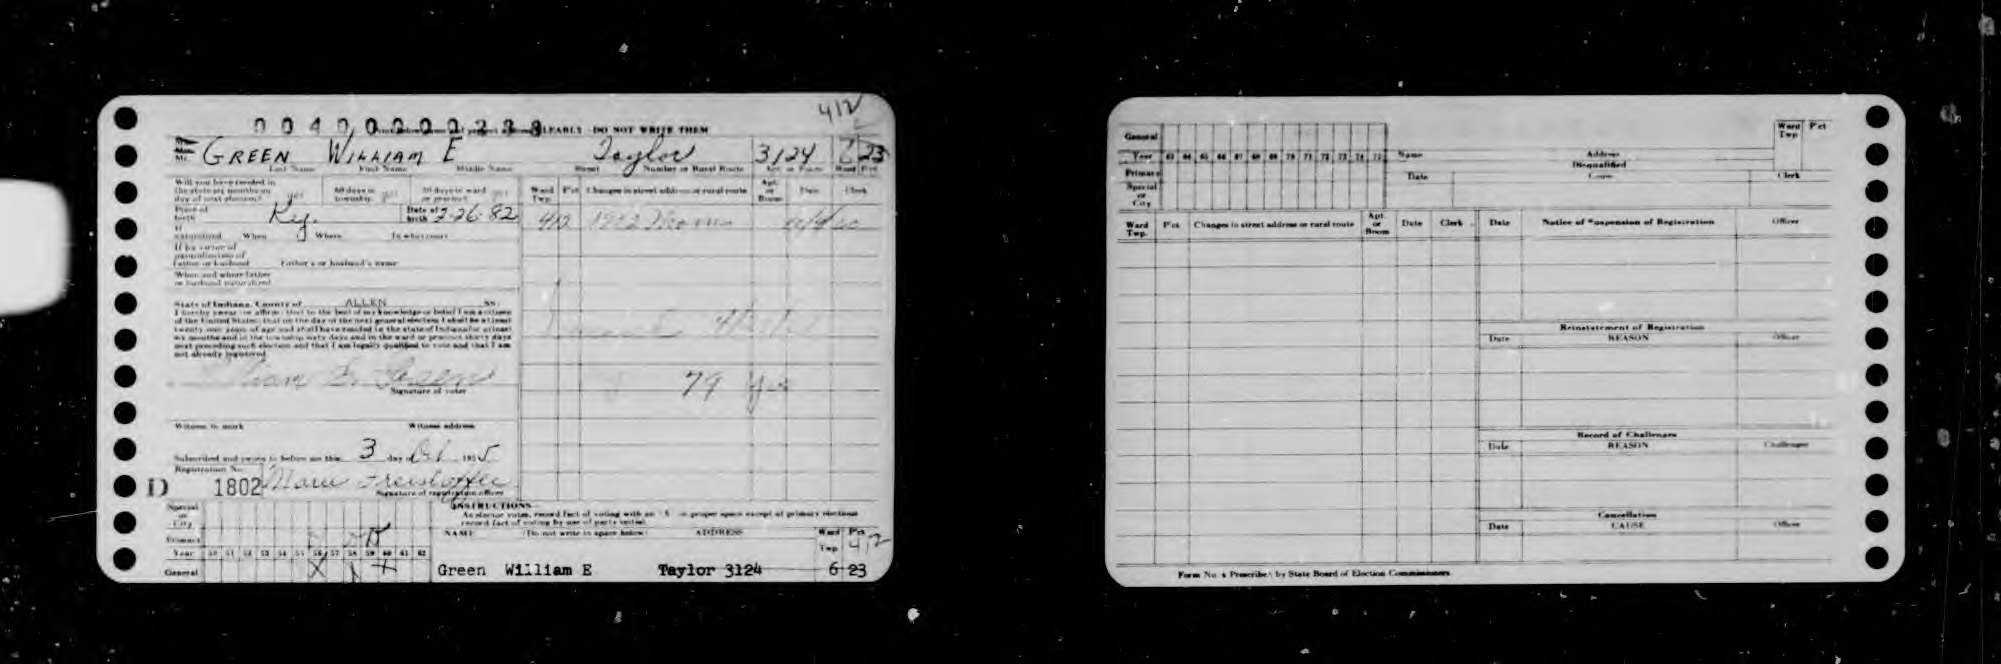 412
0040000228
CLEARLY - DO NOT WRITE THEM
Mr. GREEN WILLIAM E Taylor 3124 23
Last Name First Name Middle Name Street Number or Rural Route Apt. or Route Ward Pct
Will you have resided in
the state six months on
day of next election? yes
60 days in
township yes
30 days in ward
or precinct yes
Place of
birth Ky.
Date of
birth 2-26-82
If
naturalized When Where In what court
If by virtue of
naturalization of
father or husband Father's or husband's name
When and where father
or husband naturalized
State of Indiana, County of ALLEN SS:
I hereby swear (or affirm) that to the best of my knowledge or belief I am a citizen
of the United States; that on the day of the next general election I shall be at least
twenty-one years of age and shall have resided in the state of Indiana for at least
six months and in the township sixty days and in the ward or precinct thirty days
next preceding such election and that I am legally qualified to vote and that I am
not already registered
William E. Green
Signature of voter
Witness to mark Witness address
Subscribed and sworn to before me this 3 day of Oct 1955
Registration No.
D 1802 Marie
Signature of registration officer
Ward
Twp. Pct Changes in street address or rural route Apt.
or
Room Date Clerk
412 1922
79 yrs
INSTRUCTIONS
An elector votes, record fact of voting with an (X) in proper space except at primary elections
record fact of voting by use of party initial.
NAME (Do not write in space below) ADDRESS Ward
Twp. Pct
412
Green William E Taylor 3124 6 23
Special
or
City
Primary
Year 50 51 52 53 54 55 56 57 58 59 60 61 62
General X X
General
Year 63 64 65 66 67 68 69 70 71 72 73 74 75
Primary
Special
or
City
Name Address
Disqualified
Date Cause Clerk
Ward
Twp Pct
Ward
Twp. Pct Changes in street address or rural route Apt.
or
Room Date Clerk
Date Notice of Suspension of Registration Officer
Reinstatement of Registration
Date REASON Officer
Record of Challenges
Date REASON Challenger
Cancellation
Date CAUSE Officer
Form No. 4 Prescribed by State Board of Election Commissioners